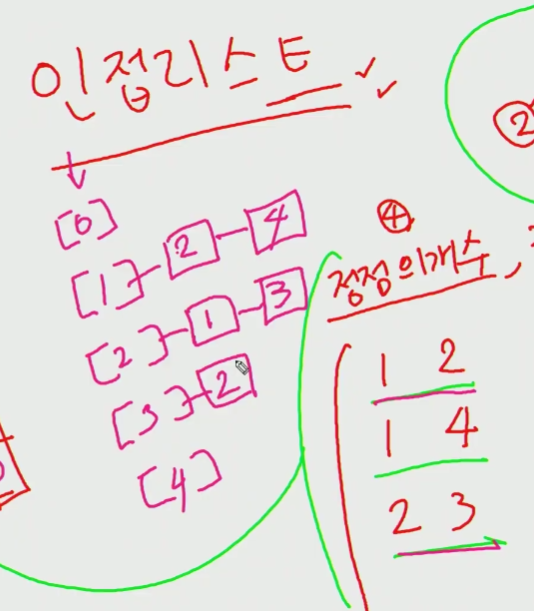 인접리스트
[0]
[1]-2-4
[2]-1-3
[3]-2
[4]
②
④
정점의개수,
1 2
1 4
2 3